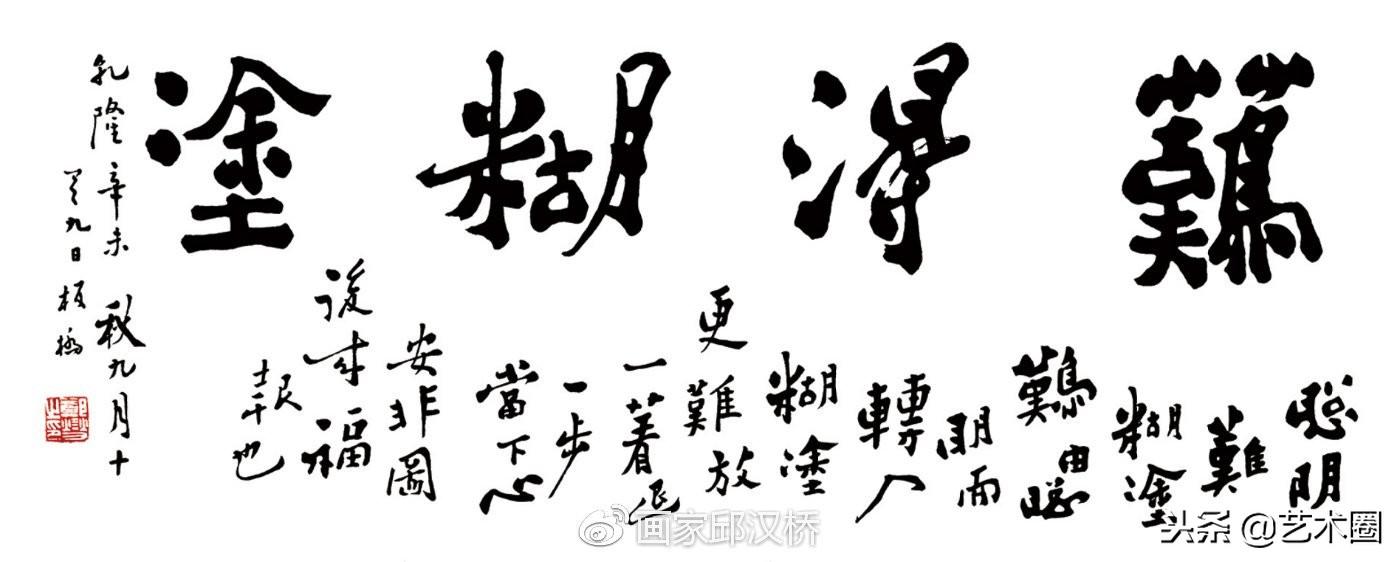 難得糊塗
聰明
難
糊塗
難由聰
明而
轉入
糊塗
更難放
一著退
一步
當下心
安非圖
後來福
報也
乾隆辛未秋九月十
又九日板橋
画家邱汉桥
头条 @艺术圈